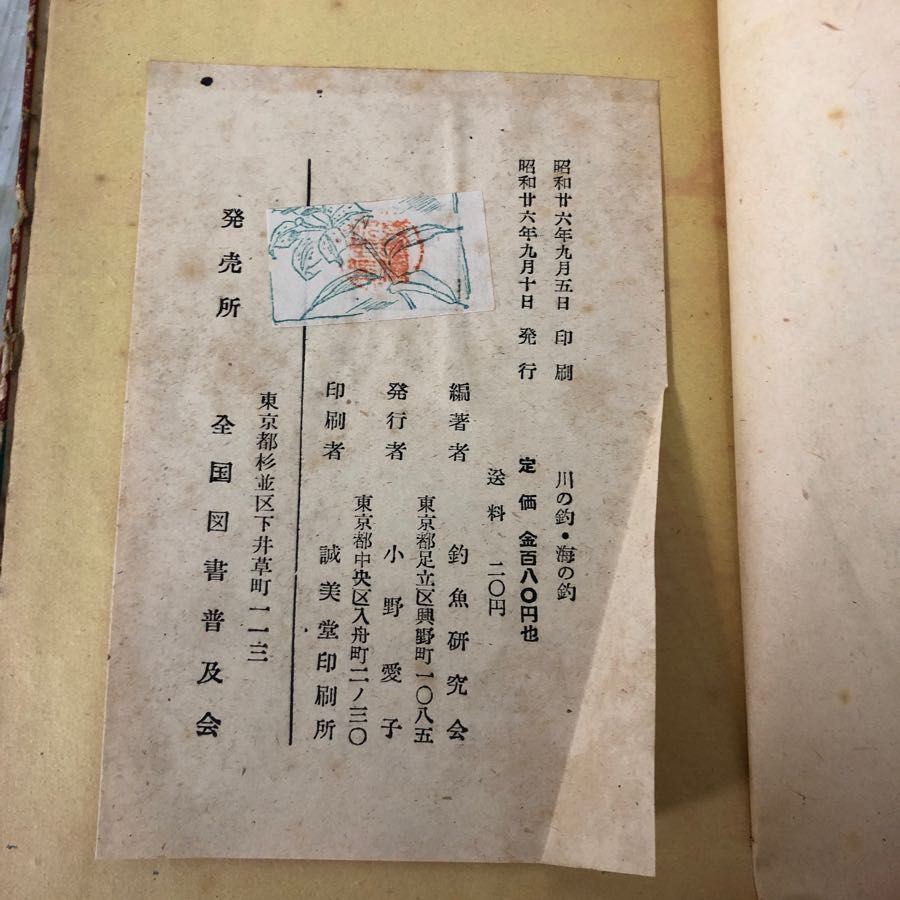 昭和廿六年九月五日 印刷
昭和廿六年九月十日 発行
川の釣・海の釣
定価 金百八〇円也
送料 二〇円
編著者 釣魚研究会
東京都足立区興野町一〇八五
発行者 小野愛子
東京都中央区入舟町二ノ三〇
印刷者 誠美堂印刷所
東京都杉並区下井草町一一三
発売所 全国図書普及会